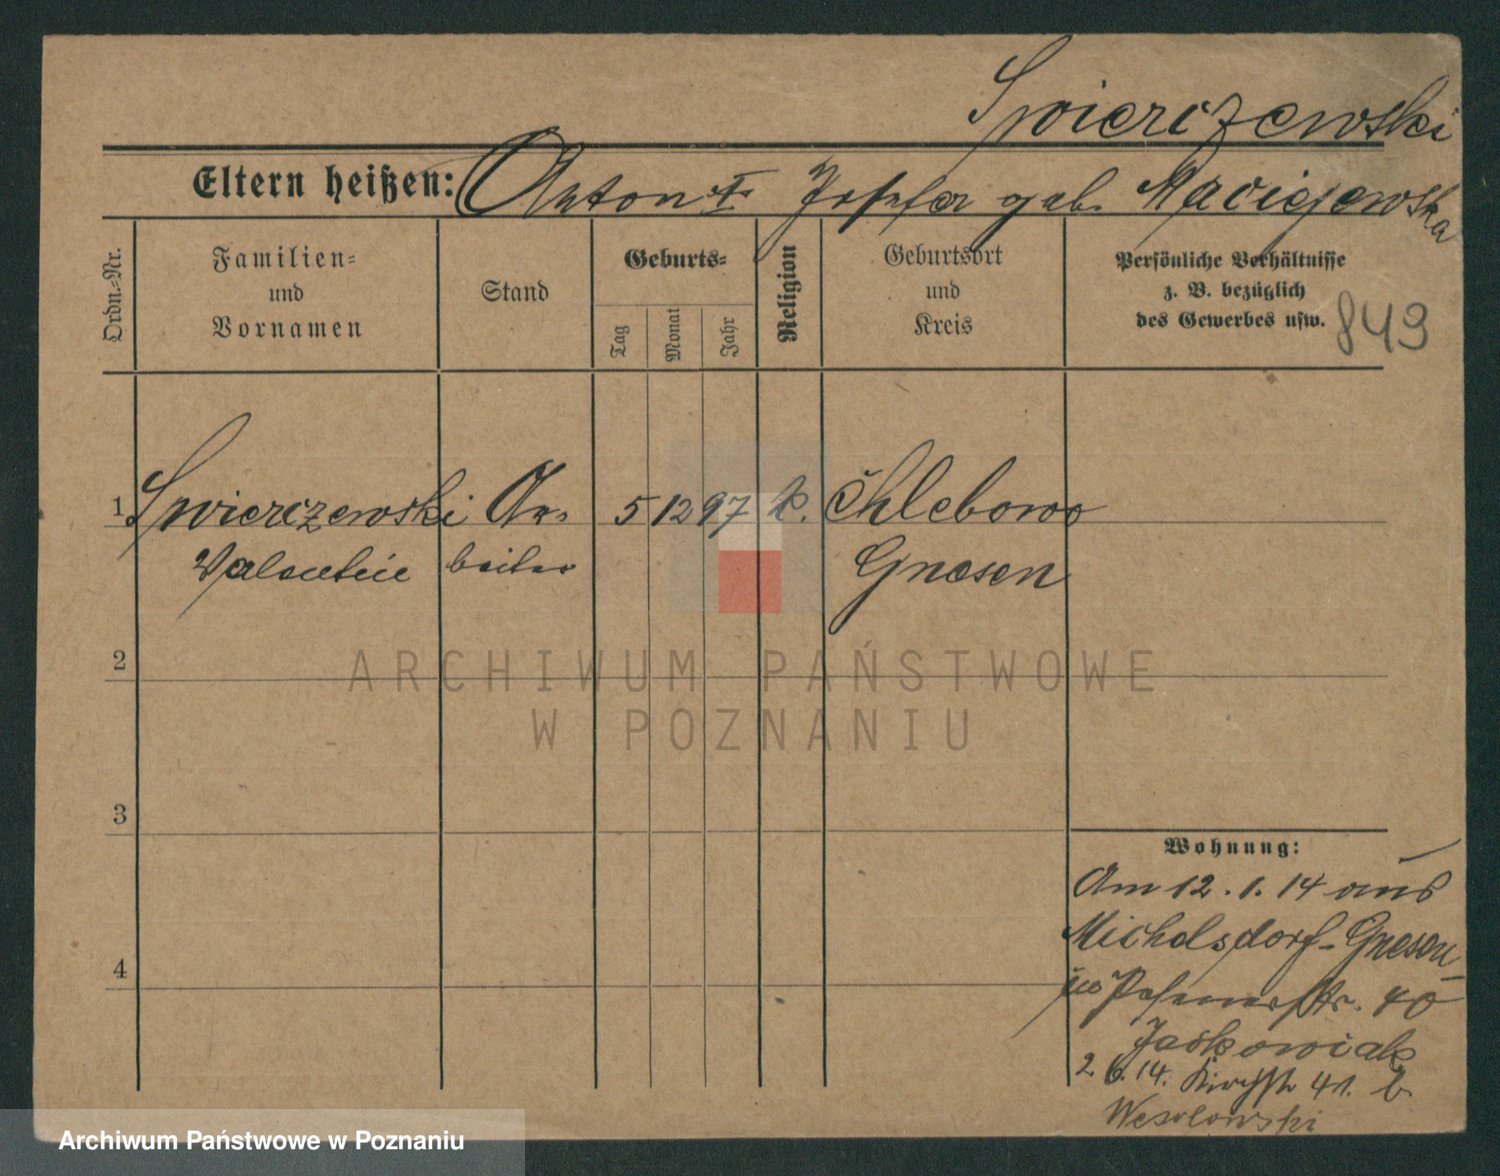 Swierczewski
Eltern heißen: Anton u. Josefa geb. Maciejewska
Ordn.-Nr.
Familien-
und
Vornamen
Stand
Geburts-
Tag
Monat
Jahr
Religion
Geburtsort
und
Kreis
Persönliche Verhältnisse
z. B. bezüglich
des Gewerbes usw.
849
1 Swierczewski Ar- 5 12 97 k. Chlebowo
Valentin beiter Gnesen
2
ARCHIWUM PAŃSTWOWE
W POZNANIU
3
Wohnung:
Am 12.1.14 aus
Michelsdorf-Gnesen
Posenerstr. 40
Jaskowiak
4
2.6.14. Kirchstr. 41. b.
Wesolowski
Archiwum Państwowe w Poznaniu